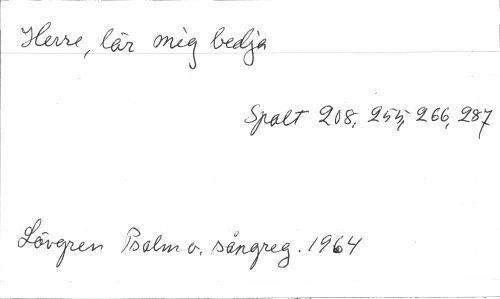 Herre, lär mig bedja
Spalt 208, 255, 266, 287
Lövgren Psalm o. sångreg. 1964